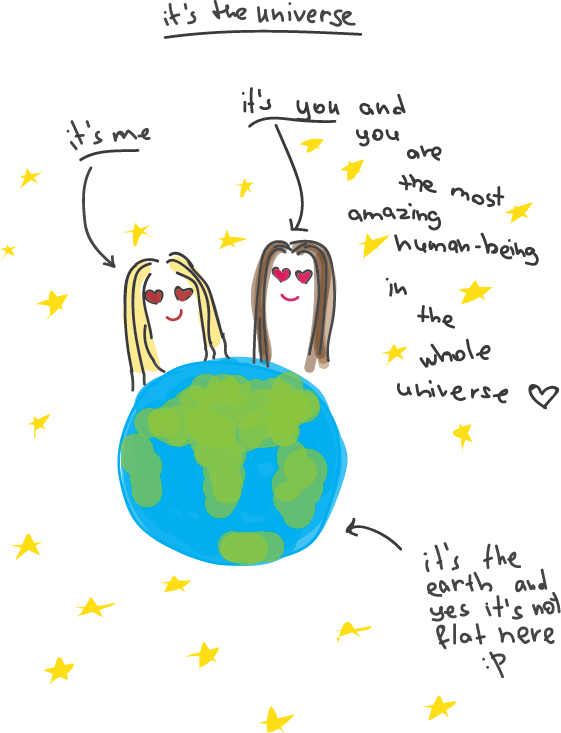 it's the universe
it's me
it's you and
you
are
the most
amazing
human-being
in
the
whole
universe ♡
it's the
earth and
yes it's not
flat here
:P